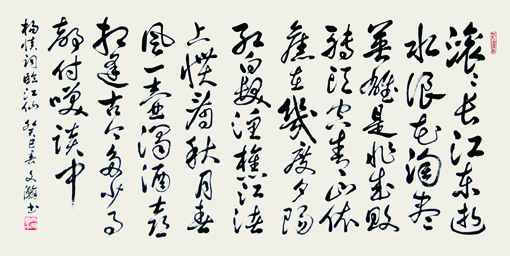 滚〻长江东逝
水浪花淘尽
英雄是非成败
转头空青山依
舊在幾度夕阳
红白发渔樵江渚
上惯看秋月春
风一壶浊酒喜
相逢古今多少事
都付笑谈中
杨慎词临江仙 癸巳春文书